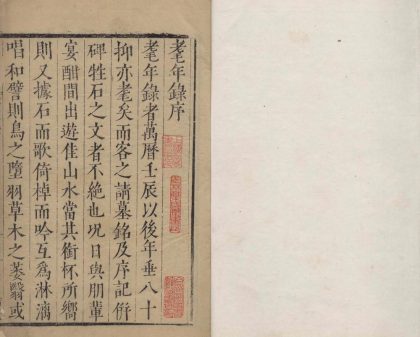 耄年錄序
耄年錄者萬曆壬辰以後年垂八十
抑亦耄矣而客之請墓銘及序記併
碑牲石之文者不絶也況日與朋輩
宴酣間出遊佳山水當其銜杯所嚮
則又據石而歌倚棹而吟互爲淋漓
唱和譬則鳥之墮羽草木之萎翳或